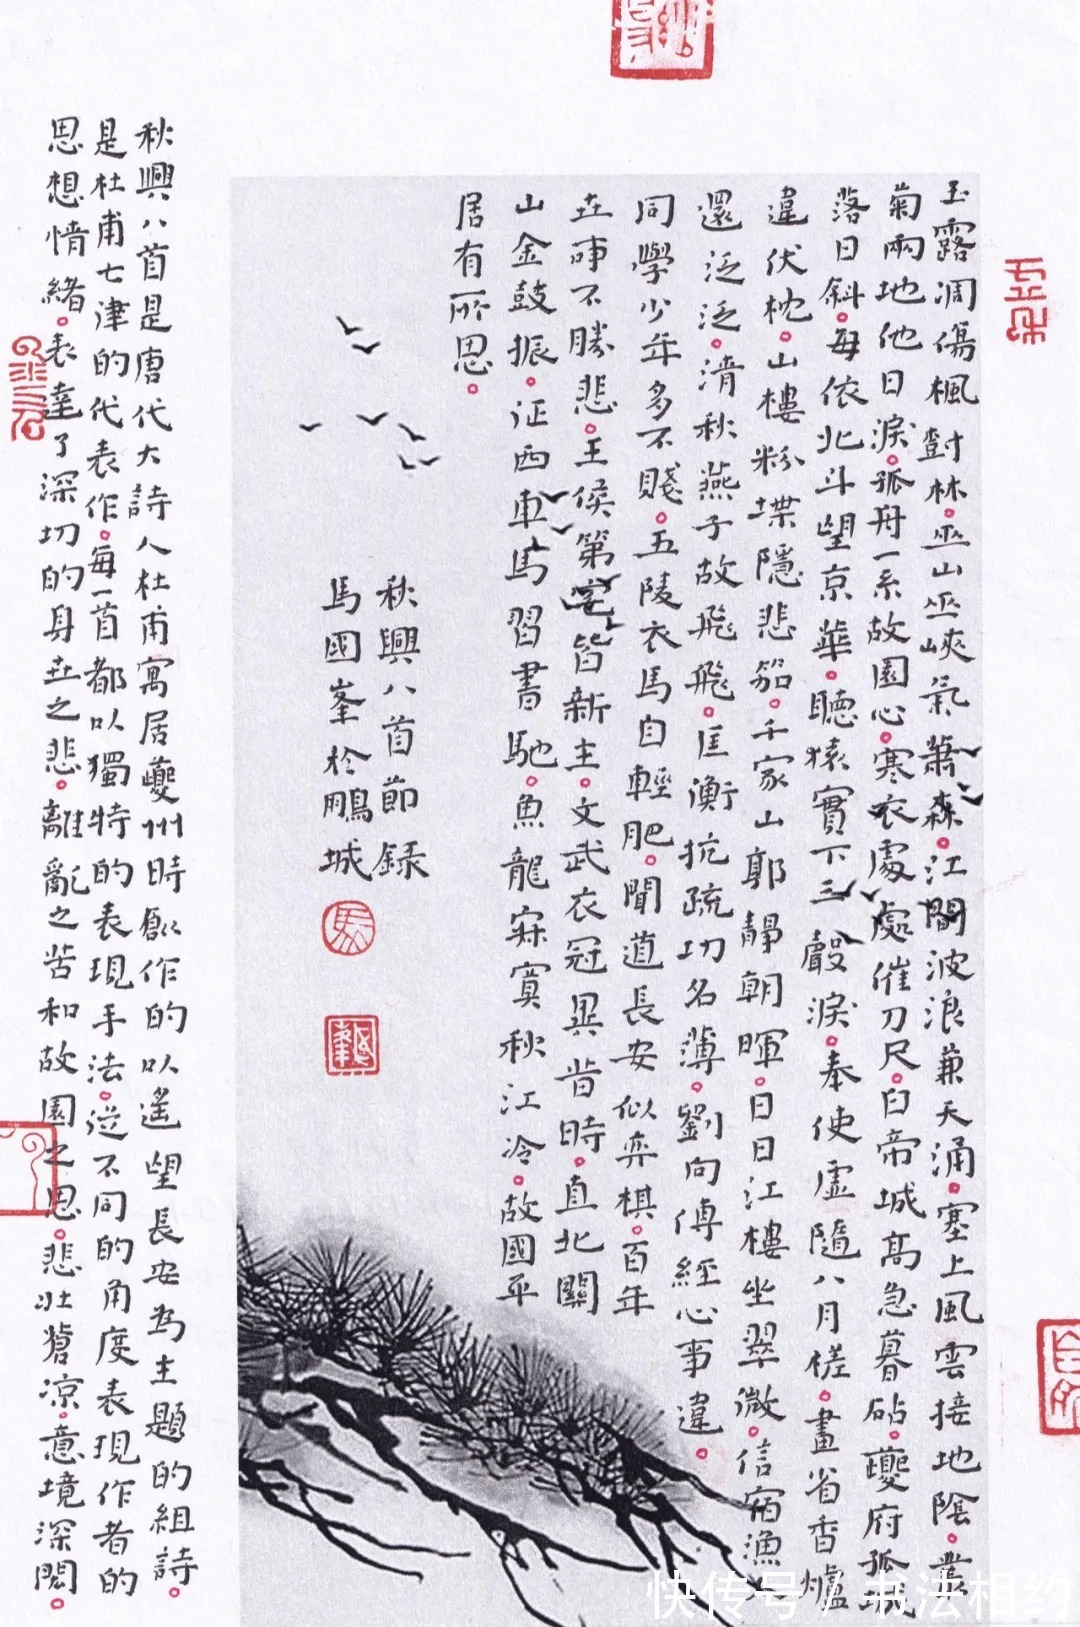 玉露凋傷楓對林。巫山巫峽氣蕭森。江間波浪兼天涌。塞上風雲接地陰。叢
菊兩地他日淚。孤舟一系故園心。寒衣處處催刀尺。白帝城高急暮砧。夔府孤城
落日斜。每依北斗望京華。聽猿實下三聲淚。奉使虛隨八月槎。畫省香爐
違伏枕。山樓粉堞隱悲笳。千家山郭靜朝暉。日日江樓坐翠微。信宿漁人
還泛泛。清秋燕子故飛飛。匡衡抗疏功名薄。劉向傳經心事違。
同學少年多不賤。五陵衣馬自輕肥。聞道長安似弈棋。百年
世事不勝悲。王侯第宅皆新主。文武衣冠異昔時。直北關
山金鼓振。征西車馬習書馳。魚龍寂寞秋江冷。故國平
居有所思。
秋興八首節録
馬國峯於鵬城
秋興八首是唐代大詩人杜甫寓居夔州時創作的以遙望長安為主題的組詩。
是杜甫七律的代表作。每一首都以獨特的表現手法。從不同的角度表現作者的
思想情緒。表達了深切的身世之悲。離亂之苦和故園之思。悲壯蒼涼。意境深閎。
快传号/书法相约